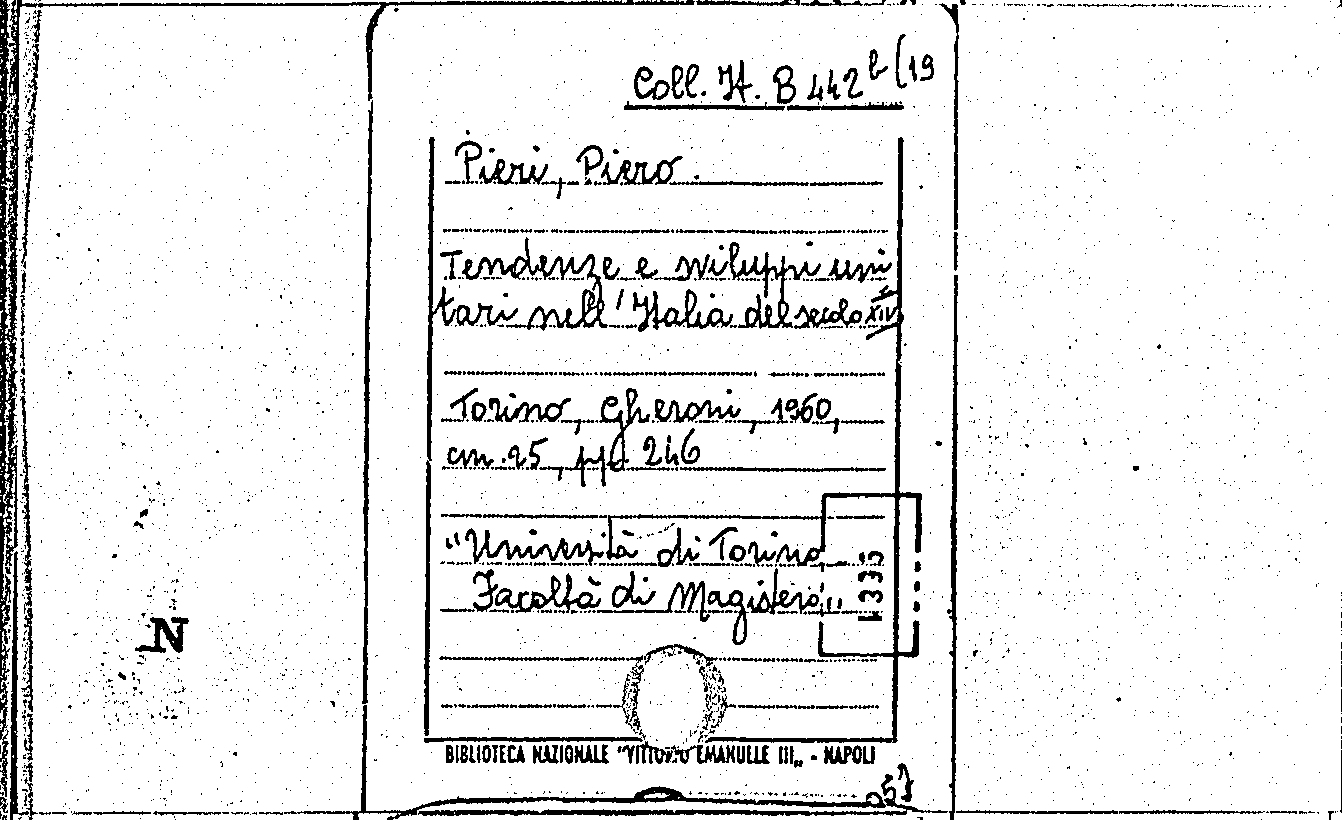 Coll. It. B 442 b (19
Pieri, Piero.
Tendenze e sviluppi uni
tari nell'Italia del secolo XIV
Torino, Gheroni, 1960,
cm. 25, pp. 246
"Università di Torino
Facoltà di Magistero"
1333
N
BIBLIOTECA NAZIONALE "VITTORIO EMANUELE III" - NAPOLI